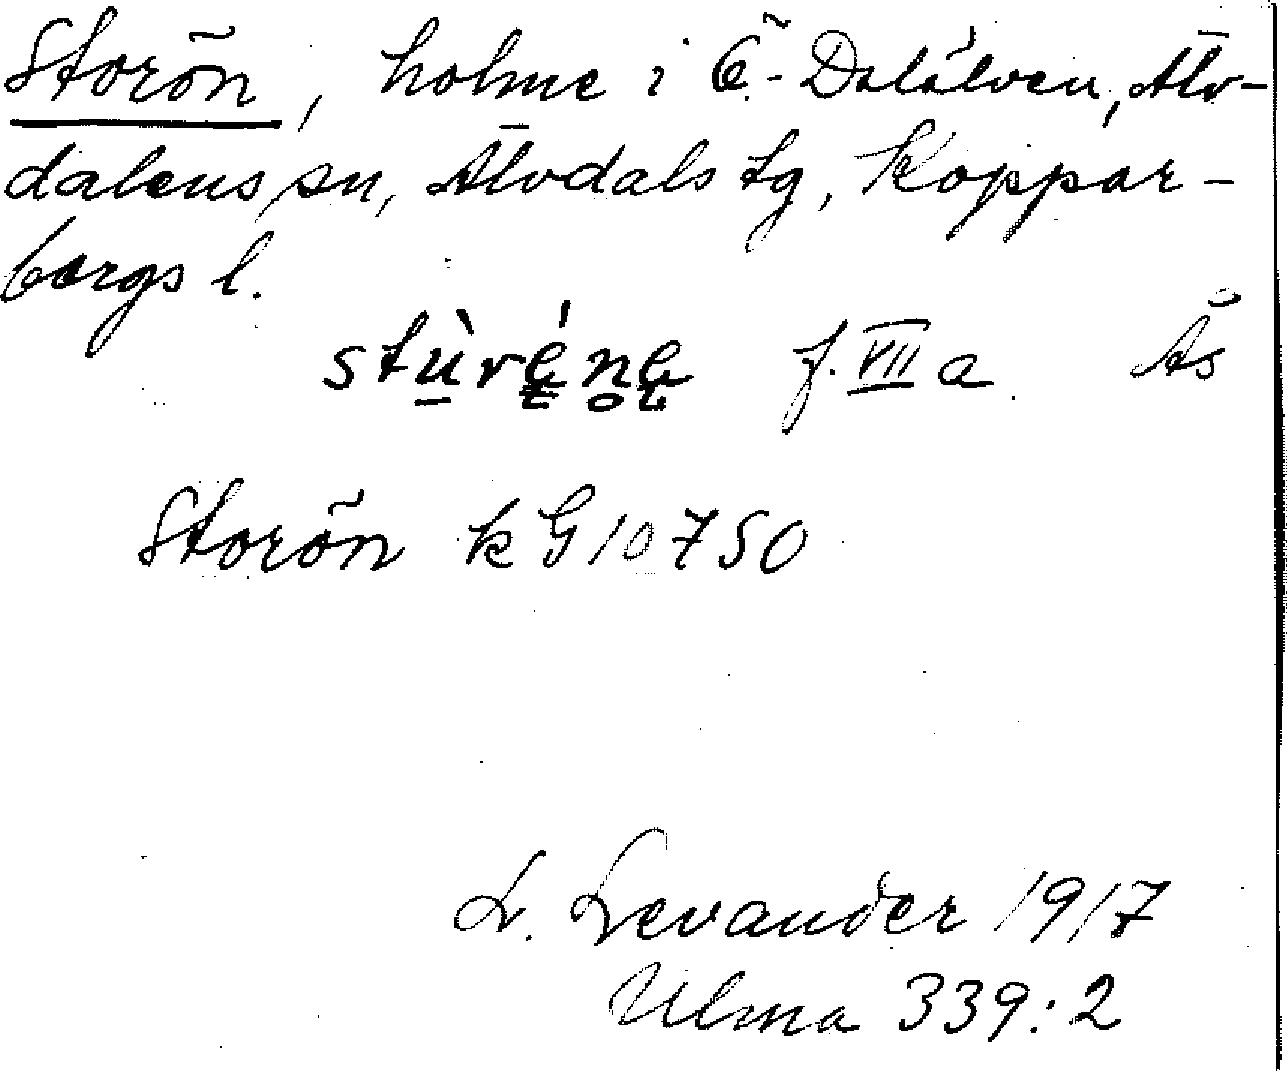 Storön, holme i Ö.-Dalälven, Älv-
dalens sn, Älvdals tg, Koppar-
bergs l.
stù̠rę́nę f. VII a Ås
Storön kG 10750
L. Levander 1917
Ulma 339:2